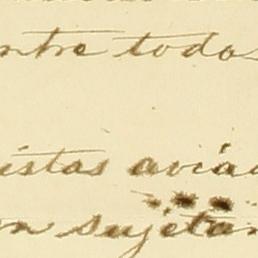 ntre todos
istas aviad
on sujetan